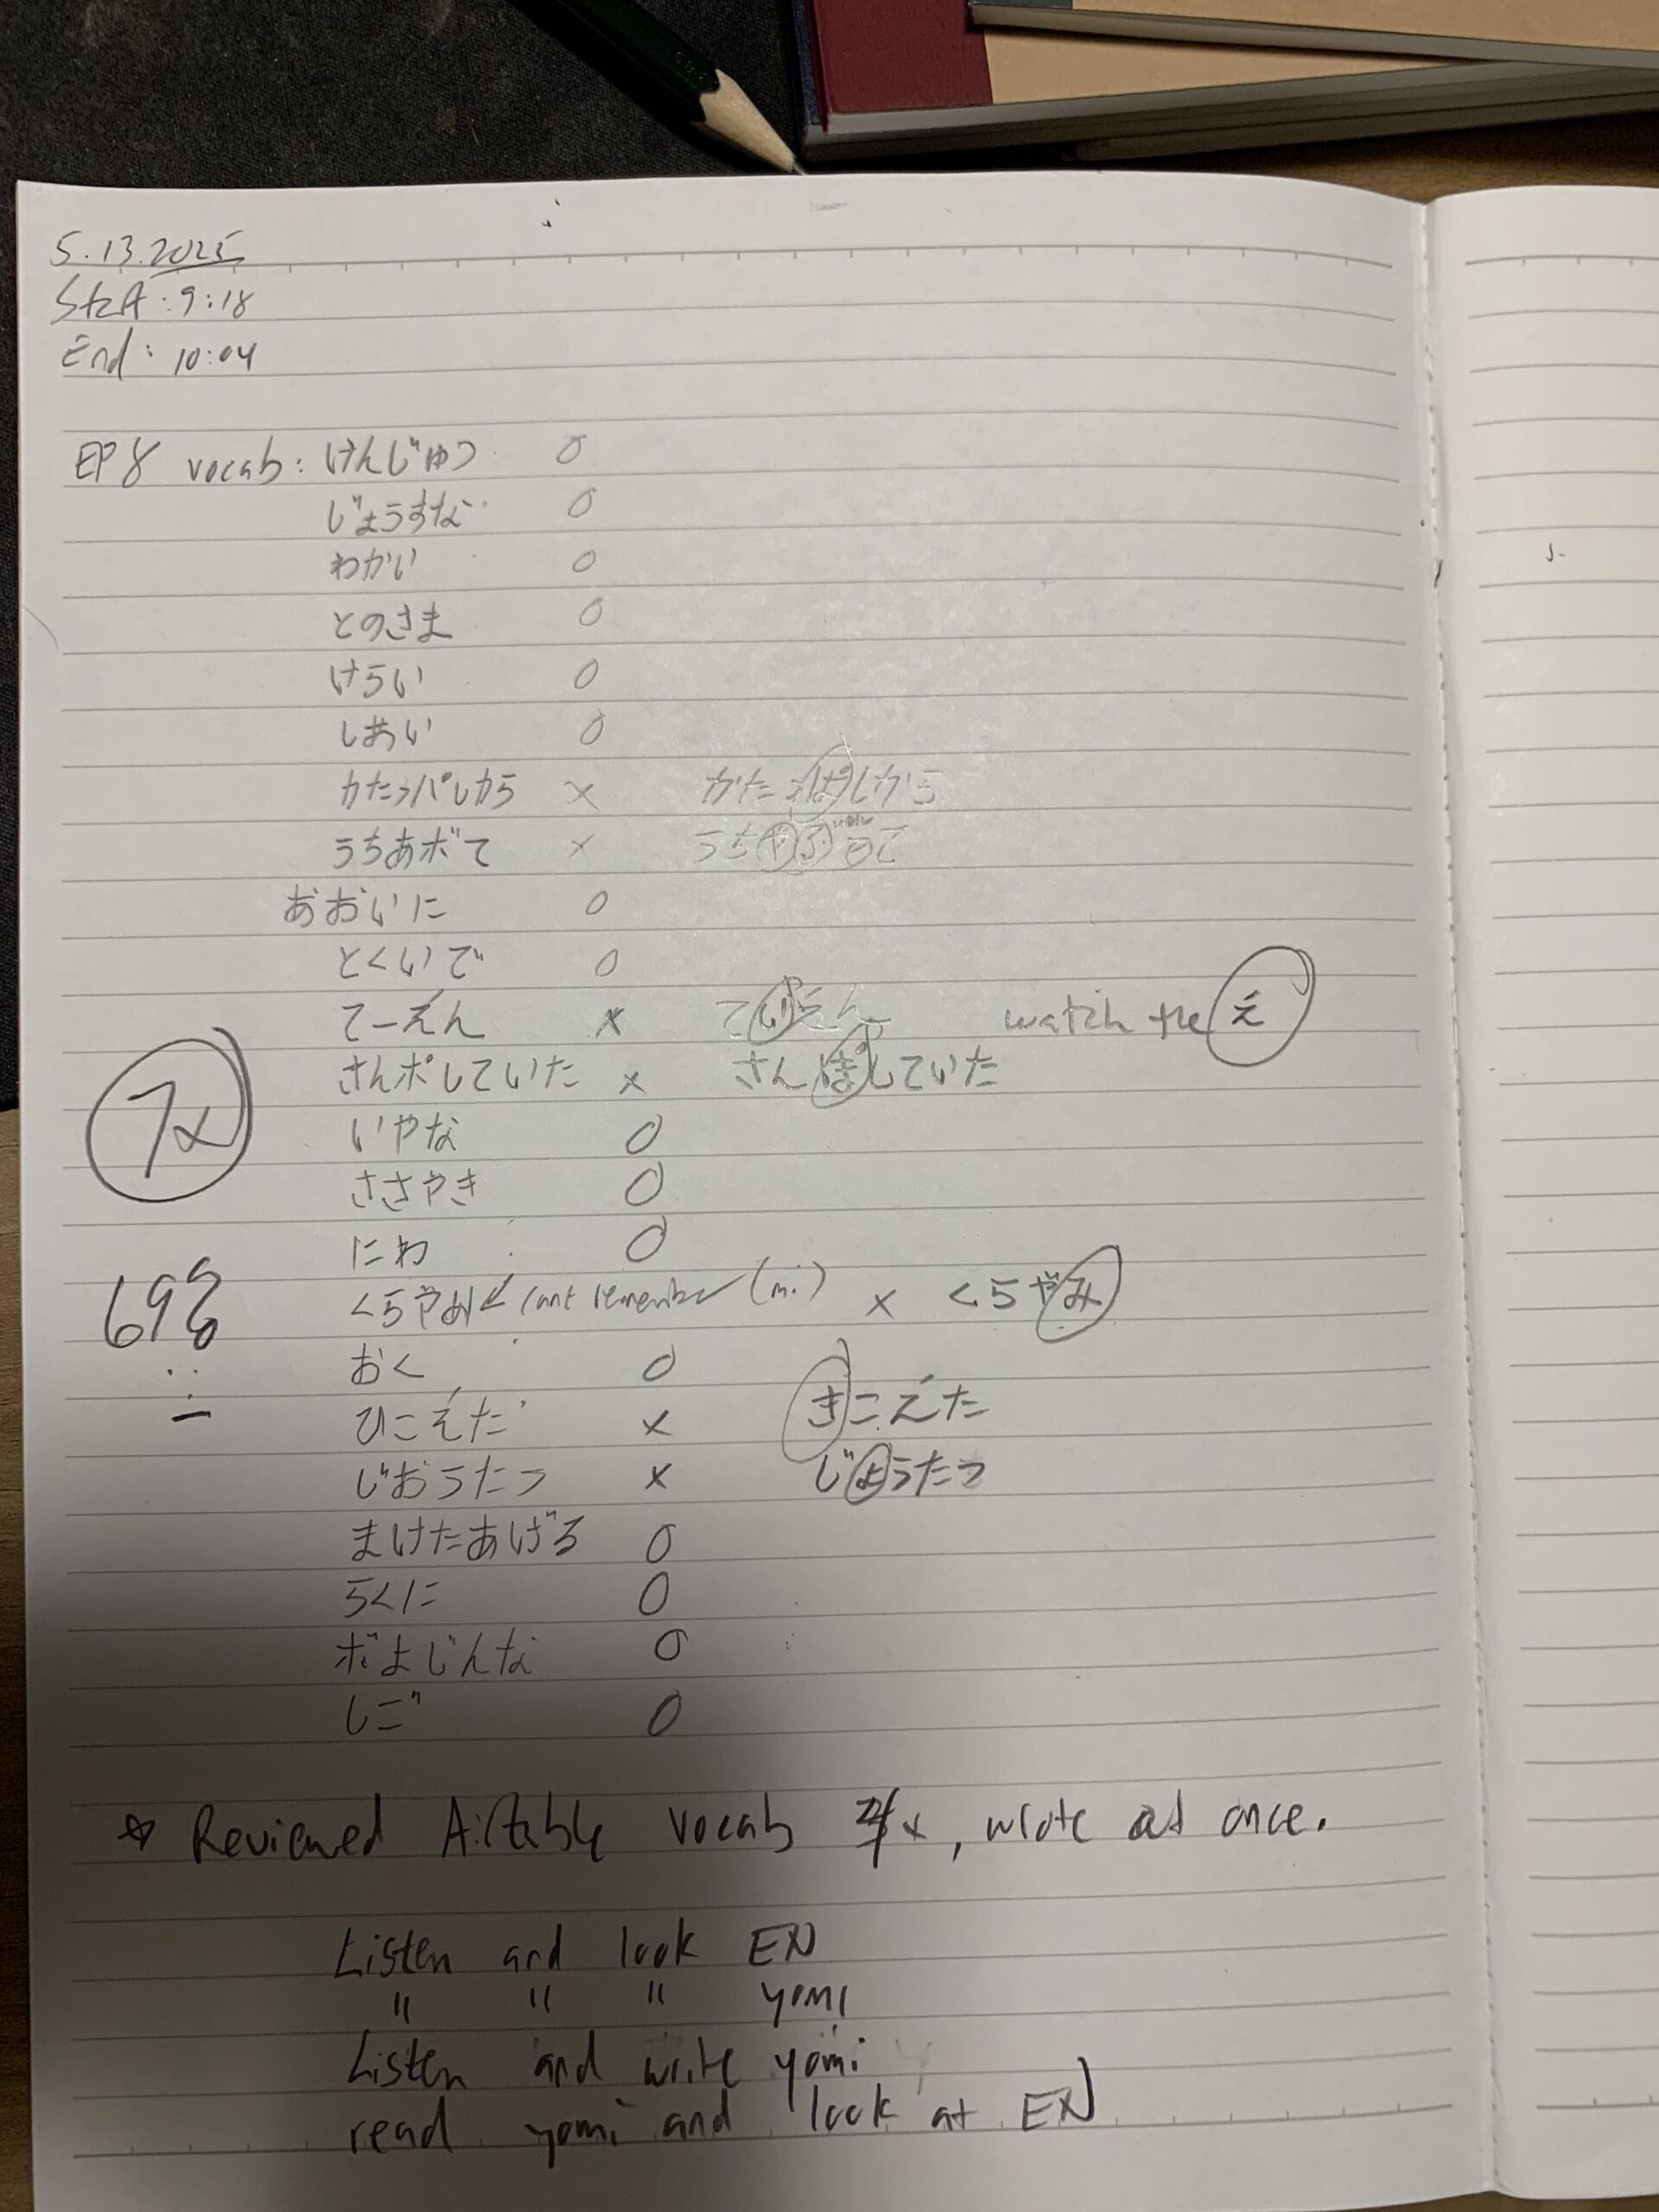 5.13.2025
Start: 9:18
End: 10:04
EP 8 vocab: けんじゅつ O
じょうすな O
わかい O
とのさま O
けらい O
しあい O
かたっパしから × かたっぱしから
うちあボて ×
おおいに O
とくいで O
てーえん × ていえん watch the え
さんポしていた × さんぽしていた
いやな O
ささやき O
にわ O
くらやみ ← cant remember (mi) × くらやみ
おく O
ひこえた × きこえた
じおうたつ × じょうたつ
まけたあげる O
らくに O
ボよじんな O
しご O
7x
69%
☆ Reviewed Airtable vocab x, wrote at once.
Listen and look EN
" " " yomi
Listen and write yomi
read yomi and look at EN